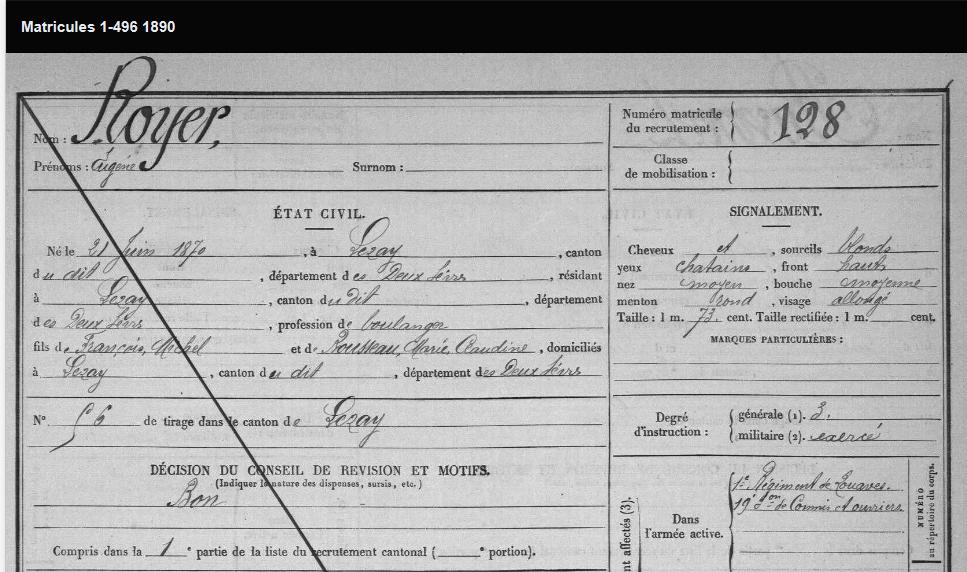 Matricules 1-496 1890
Royer,
Nom :
Prénoms : Eugène Surnom :
Numéro matricule
du recrutement : 128
Classe
de mobilisation :
ÉTAT CIVIL.
Né le 21 Juin 1870, à Lezay, canton
du dit, département des Deux Sèvres, résidant
à Lezay, canton du dit, département
des Deux Sèvres, profession de boulanger
fils de François, Michel et de Rousseau, Marie, Claudine, domiciliés
à Lezay, canton du dit, département des Deux Sèvres
N° 56 de tirage dans le canton de Lezay
DÉCISION DU CONSEIL DE REVISION ET MOTIFS.
(Indiquer la nature des dispenses, sursis, etc.)
Bon
Compris dans la 1e partie de la liste du recrutement cantonal ( e portion).
SIGNALEMENT.
Cheveux et, sourcils blonds
yeux chatains, front haut
nez moyen, bouche moyenne
menton rond, visage allongé
Taille : 1 m. 73. cent. Taille rectifiée : 1 m. cent.
MARQUES PARTICULIÈRES :
Degré
d'instruction :
générale (1). 3.
militaire (2). exercé
nt affectés (3).
Dans
l'armée active.
1er Régiment de Zouaves.
19e Son de Commis et ouvriers
NUMÉRO
au répertoire du corps.